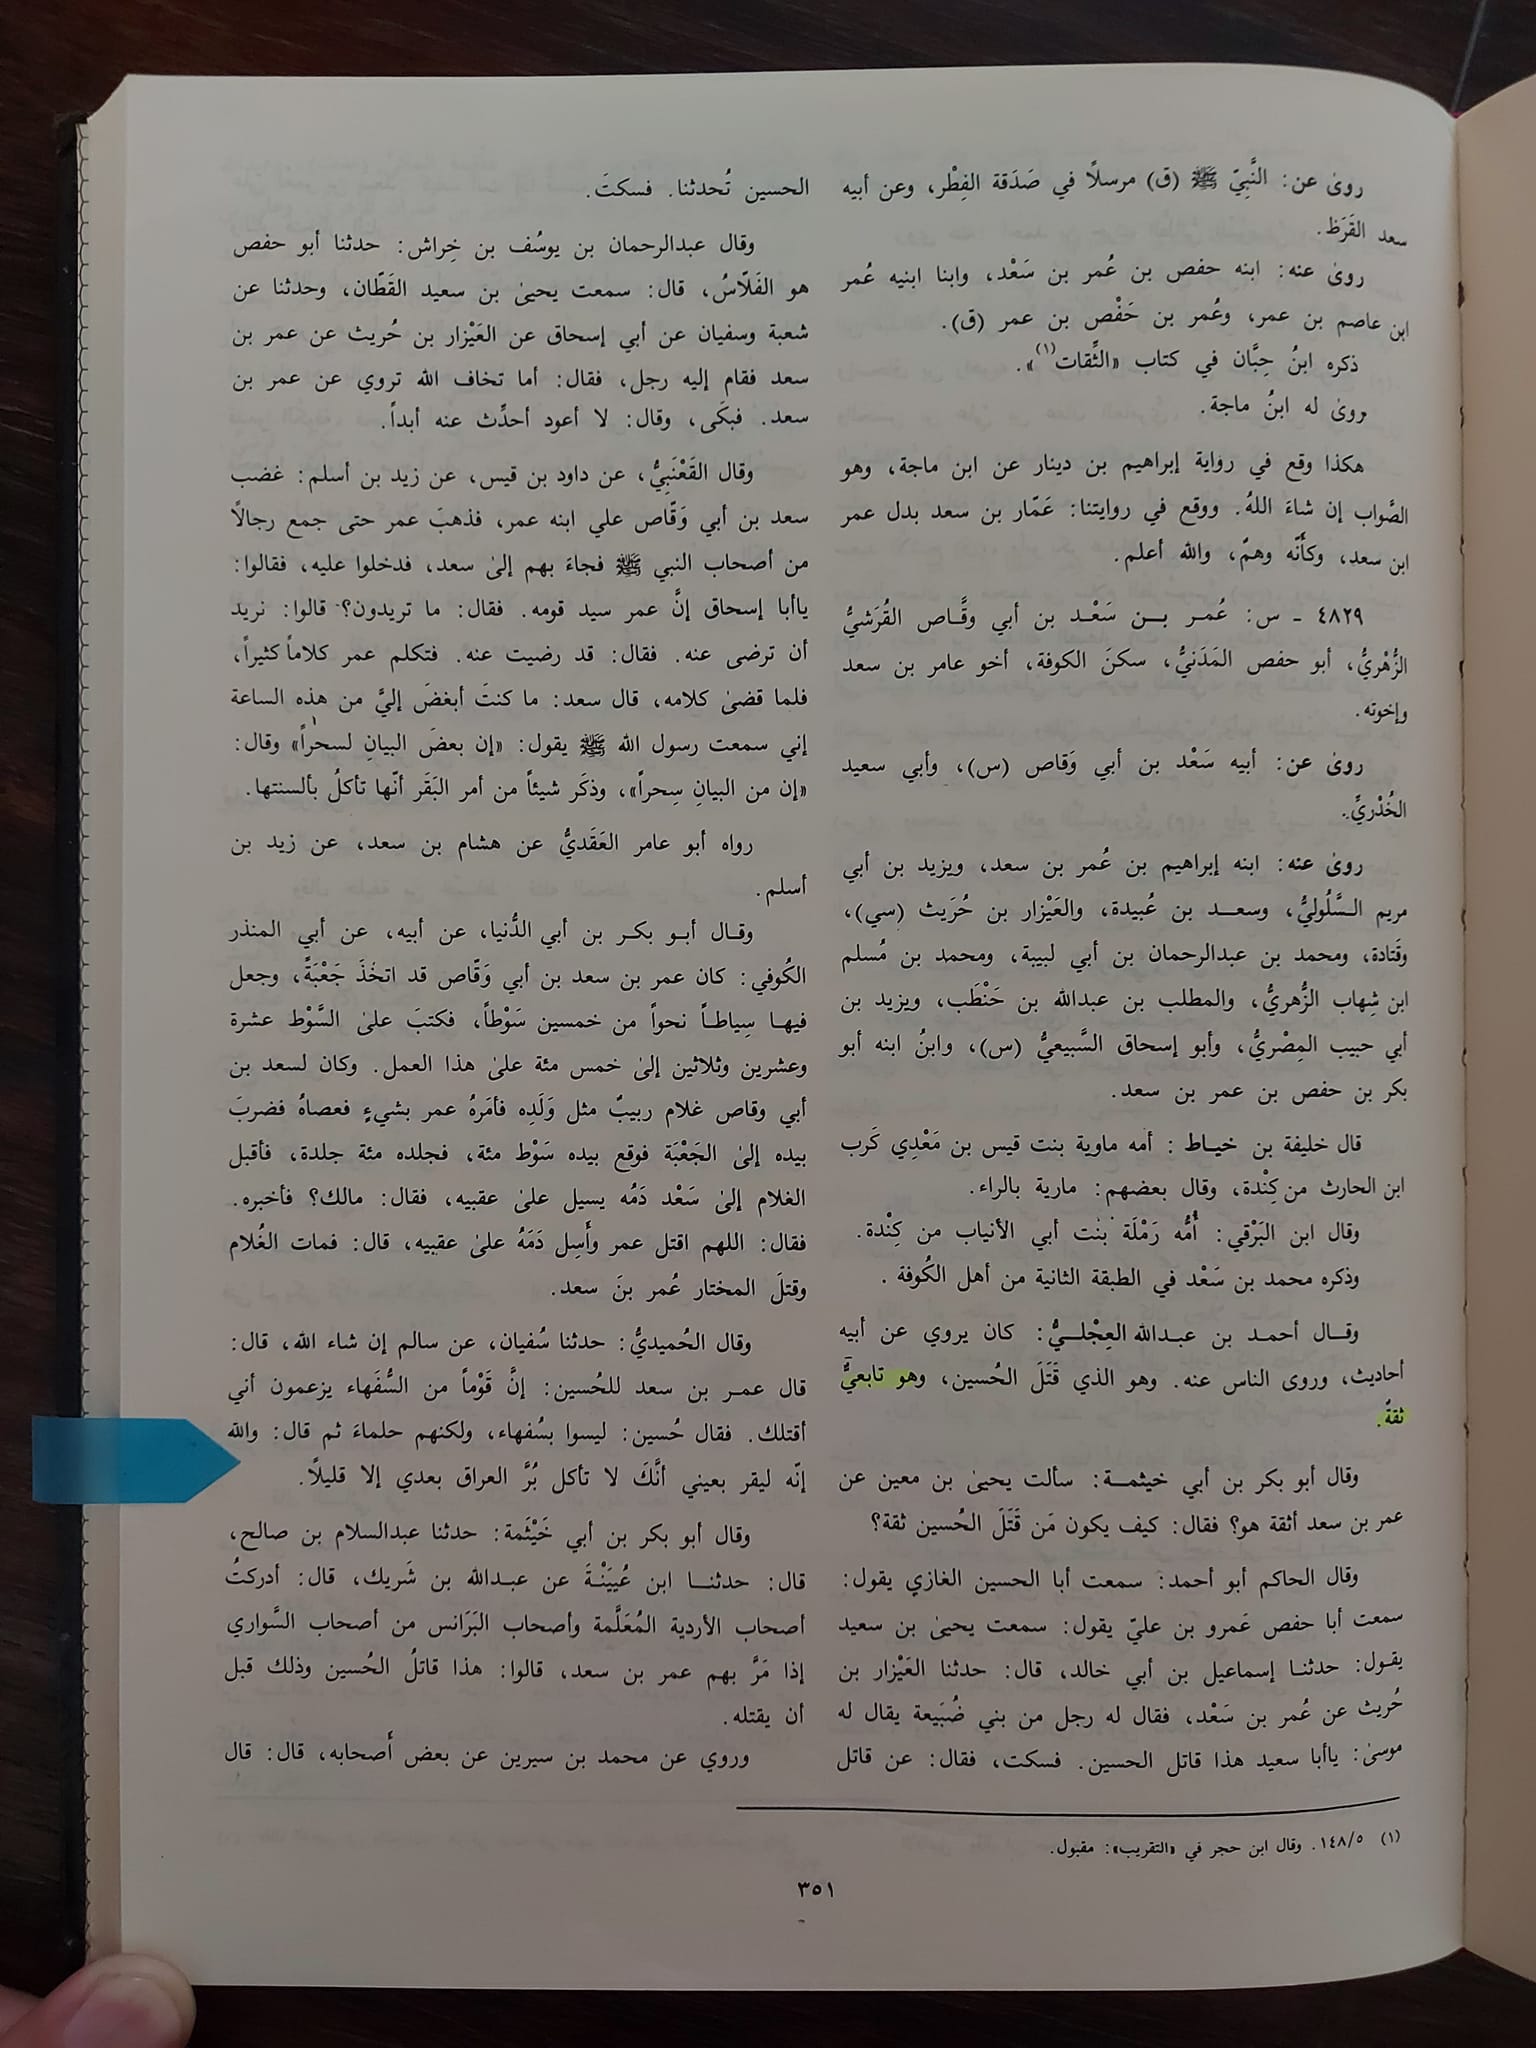 روىٰ عن: النَّبِيّ ﷺ (ق) مرسلًا في صَدَقة الفِطْر، وعن أبيه
سعد القَرَظ.
روىٰ عنه: ابنه حفص بن عُمر بن سَعْد، وابنا ابنيه عُمر
ابن عاصم بن عمر، وعُمر بن حَفْص بن عمر (ق).
ذكره ابنُ حِبَّان في كتاب «الثِّقات(١)».
روىٰ له ابنُ ماجة.
هكذا وقع في رواية إبراهيم بن دينار عن ابن ماجة، وهو
الصَّواب إن شاءَ اللهُ. ووقع في روايتنا: عَمّار بن سعد بدل عمر
ابن سعد، وكأَنّه وهمٌ، والله أعلم.
٤٨٢٩ ـ س: عُمر بن سَعْد بن أبي وقَّاص القُرَشيُّ
الزُّهْريُّ، أبو حفص المَدَنيُّ، سكنَ الكوفة، أخو عامر بن سعد
وإخوته.
روىٰ عن: أبيه سَعْد بن أبي وَقاص (س)، وأبي سعيد
الخُدْريِّ.
روىٰ عنه: ابنه إبراهيم بن عُمر بن سعد، ويزيد بن أبي
مريم السَّلُوليُّ، وسعد بن عُبيدة، والعَيْزار بن حُرَيث (سي)،
وقَتادة، ومحمد بن عبدالرحمان بن أبي لبيبة، ومحمد بن مُسلم
ابن شِهاب الزُّهريُّ، والمطلب بن عبدالله بن حَنْطَب، ويزيد بن
أبي حبيب المِصْريُّ، وأبو إسحاق السَّبيعيُّ (س)، وابنُ ابنه أبو
بكر بن حفص بن عمر بن سعد.
قال خليفة بن خياط: أمه ماوية بنت قيس بن مَعْدِي كَرب
ابن الحارث من كِنْدة، وقال بعضهم: مارية بالراء.
وقال ابن البَرْقي: أُمُّه رَمْلَة بنت أبي الأنياب من كِنْدة.
وذكره محمد بن سَعْد في الطبقة الثانية من أهل الكُوفة.
وقال أحمد بن عبدالله العِجْليُّ: كان يروي عن أبيه
أحاديث، وروى الناس عنه. وهو الذي قَتَلَ الحُسين، وهو تابعيٌّ
ثقةٌ.
وقال أبو بكر بن أبي خيثمة: سألت يحيىٰ بن معين عن
عمر بن سعد أثقة هو؟ فقال: كيف يكون مَن قَتَلَ الحُسين ثقة؟
وقال الحاكم أبو أحمد: سمعت أبا الحسين الغازي يقول:
سمعت أبا حفص عَمرو بن عليّ يقول: سمعت يحيىٰ بن سعيد
يقول: حدثنا إسماعيل بن أبي خالد، قال: حدثنا العَيْزار بن
حُريث عن عُمر بن سَعْد، فقال له رجل من بني ضُبَيعة يقال له
موسىٰ: ياأبا سعيد هذا قاتل الحسين. فسكت، فقال: عن قاتل
الحسين تُحدثنا. فسكتَ.
وقال عبدالرحمان بن يوسُف بن خِراش: حدثنا أبو حفص
هو الفَلّاسُ، قال: سمعت يحيىٰ بن سعيد القَطّان، وحدثنا عن
شعبة وسفيان عن أبي إسحاق عن العَيْزار بن حُريث عن عمر بن
سعد فقام إليه رجل، فقال: أما تخاف الله تروي عن عمر بن
سعد. فبكَى، وقال: لا أعود أحدِّث عنه أبداً.
وقال القَعْنَبِيُّ، عن داود بن قيس، عن زيد بن أسلم: غضب
سعد بن أبي وَقّاص علي ابنه عمر، فذهبَ عمر حتى جمع رجالًا
من أصحاب النبي ﷺ فجاءَ بهم إلىٰ سعد، فدخلوا عليه، فقالوا:
ياأبا إسحاق إنَّ عمر سيد قومه. فقال: ما تريدون؟ قالوا: نريد
أن ترضى عنه. فقال: قد رضيت عنه. فتكلم عمر كلاماً كثيراً،
فلما قضىٰ كلامه، قال سعد: ما كنتَ أبغضَ إليَّ من هذه الساعة
إني سمعت رسول الله ﷺ يقول: «إن بعضَ البيانِ لسحراً» وقال:
«إن من البيانِ سِحراً»، وذكَر شيئاً من أمر البَقَر أنّها تأكلُ بألسنتها.
رواه أبو عامر العَقَديُّ عن هشام بن سعد، عن زيد بن
أسلم.
وقال أبو بكر بن أبي الدُّنيا، عن أبيه، عن أبي المنذر
الكُوفي: كان عمر بن سعد بن أبي وَقّاص قد اتخذَ جَعْبَةً، وجعل
فيها سِياطاً نحواً من خمسين سَوْطاً، فكتبَ علىٰ السَّوْط عشرة
وعشرين وثلاثين إلىٰ خمس مئة علىٰ هذا العمل. وكان لسعد بن
أبي وقاص غلام ربيبٌ مثل وَلَدِه فأمَرهُ عمر بشيءٍ فعصاهُ فضربَ
بيده إلىٰ الجَعْبَة فوقع بيده سَوْط مئة، فجلده مئة جلدة، فأقبل
الغلام إلىٰ سَعْد دَمُه يسيل علىٰ عقبيه، فقال: مالك؟ فأخبره.
فقال: اللهم اقتل عمر وأَسِل دَمَهُ علىٰ عقبيه، قال: فمات الغُلام
وقتلَ المختار عُمر بنَ سعد.
وقال الحُميديُّ: حدثنا سُفيان، عن سالم إن شاء الله، قال:
قال عمر بن سعد للحُسين: إنَّ قَوْماً من السُّفَهاء يزعمون أني
أقتلك. فقال حُسين: ليسوا بسُفهاء، ولكنهم حلماءَ ثم قال: والله
إنّه ليقر بعيني أنَّكَ لا تأكل بُرَّ العراق بعدي إلا قليلًا.
وقال أبو بكر بن أبي خَيْثَمة: حدثنا عبدالسلام بن صالح،
قال: حدثنا ابن عُيَيْنَةَ عن عبدالله بن شَريك، قال: أدركتُ
أصحاب الأردية المُعَلَّمة وأصحاب البَرَانس من أصحاب السَّواري
إذا مَرَّ بهم عمر بن سعد، قالوا: هذا قاتلُ الحُسين وذلك قبل
أن يقتله.
وروي عن محمد بن سيرين عن بعض أَصحابه، قال: قال
(١) ١٤٨/٥. وقال ابن حجر في «التقريب»: مقبول.
٣٥١